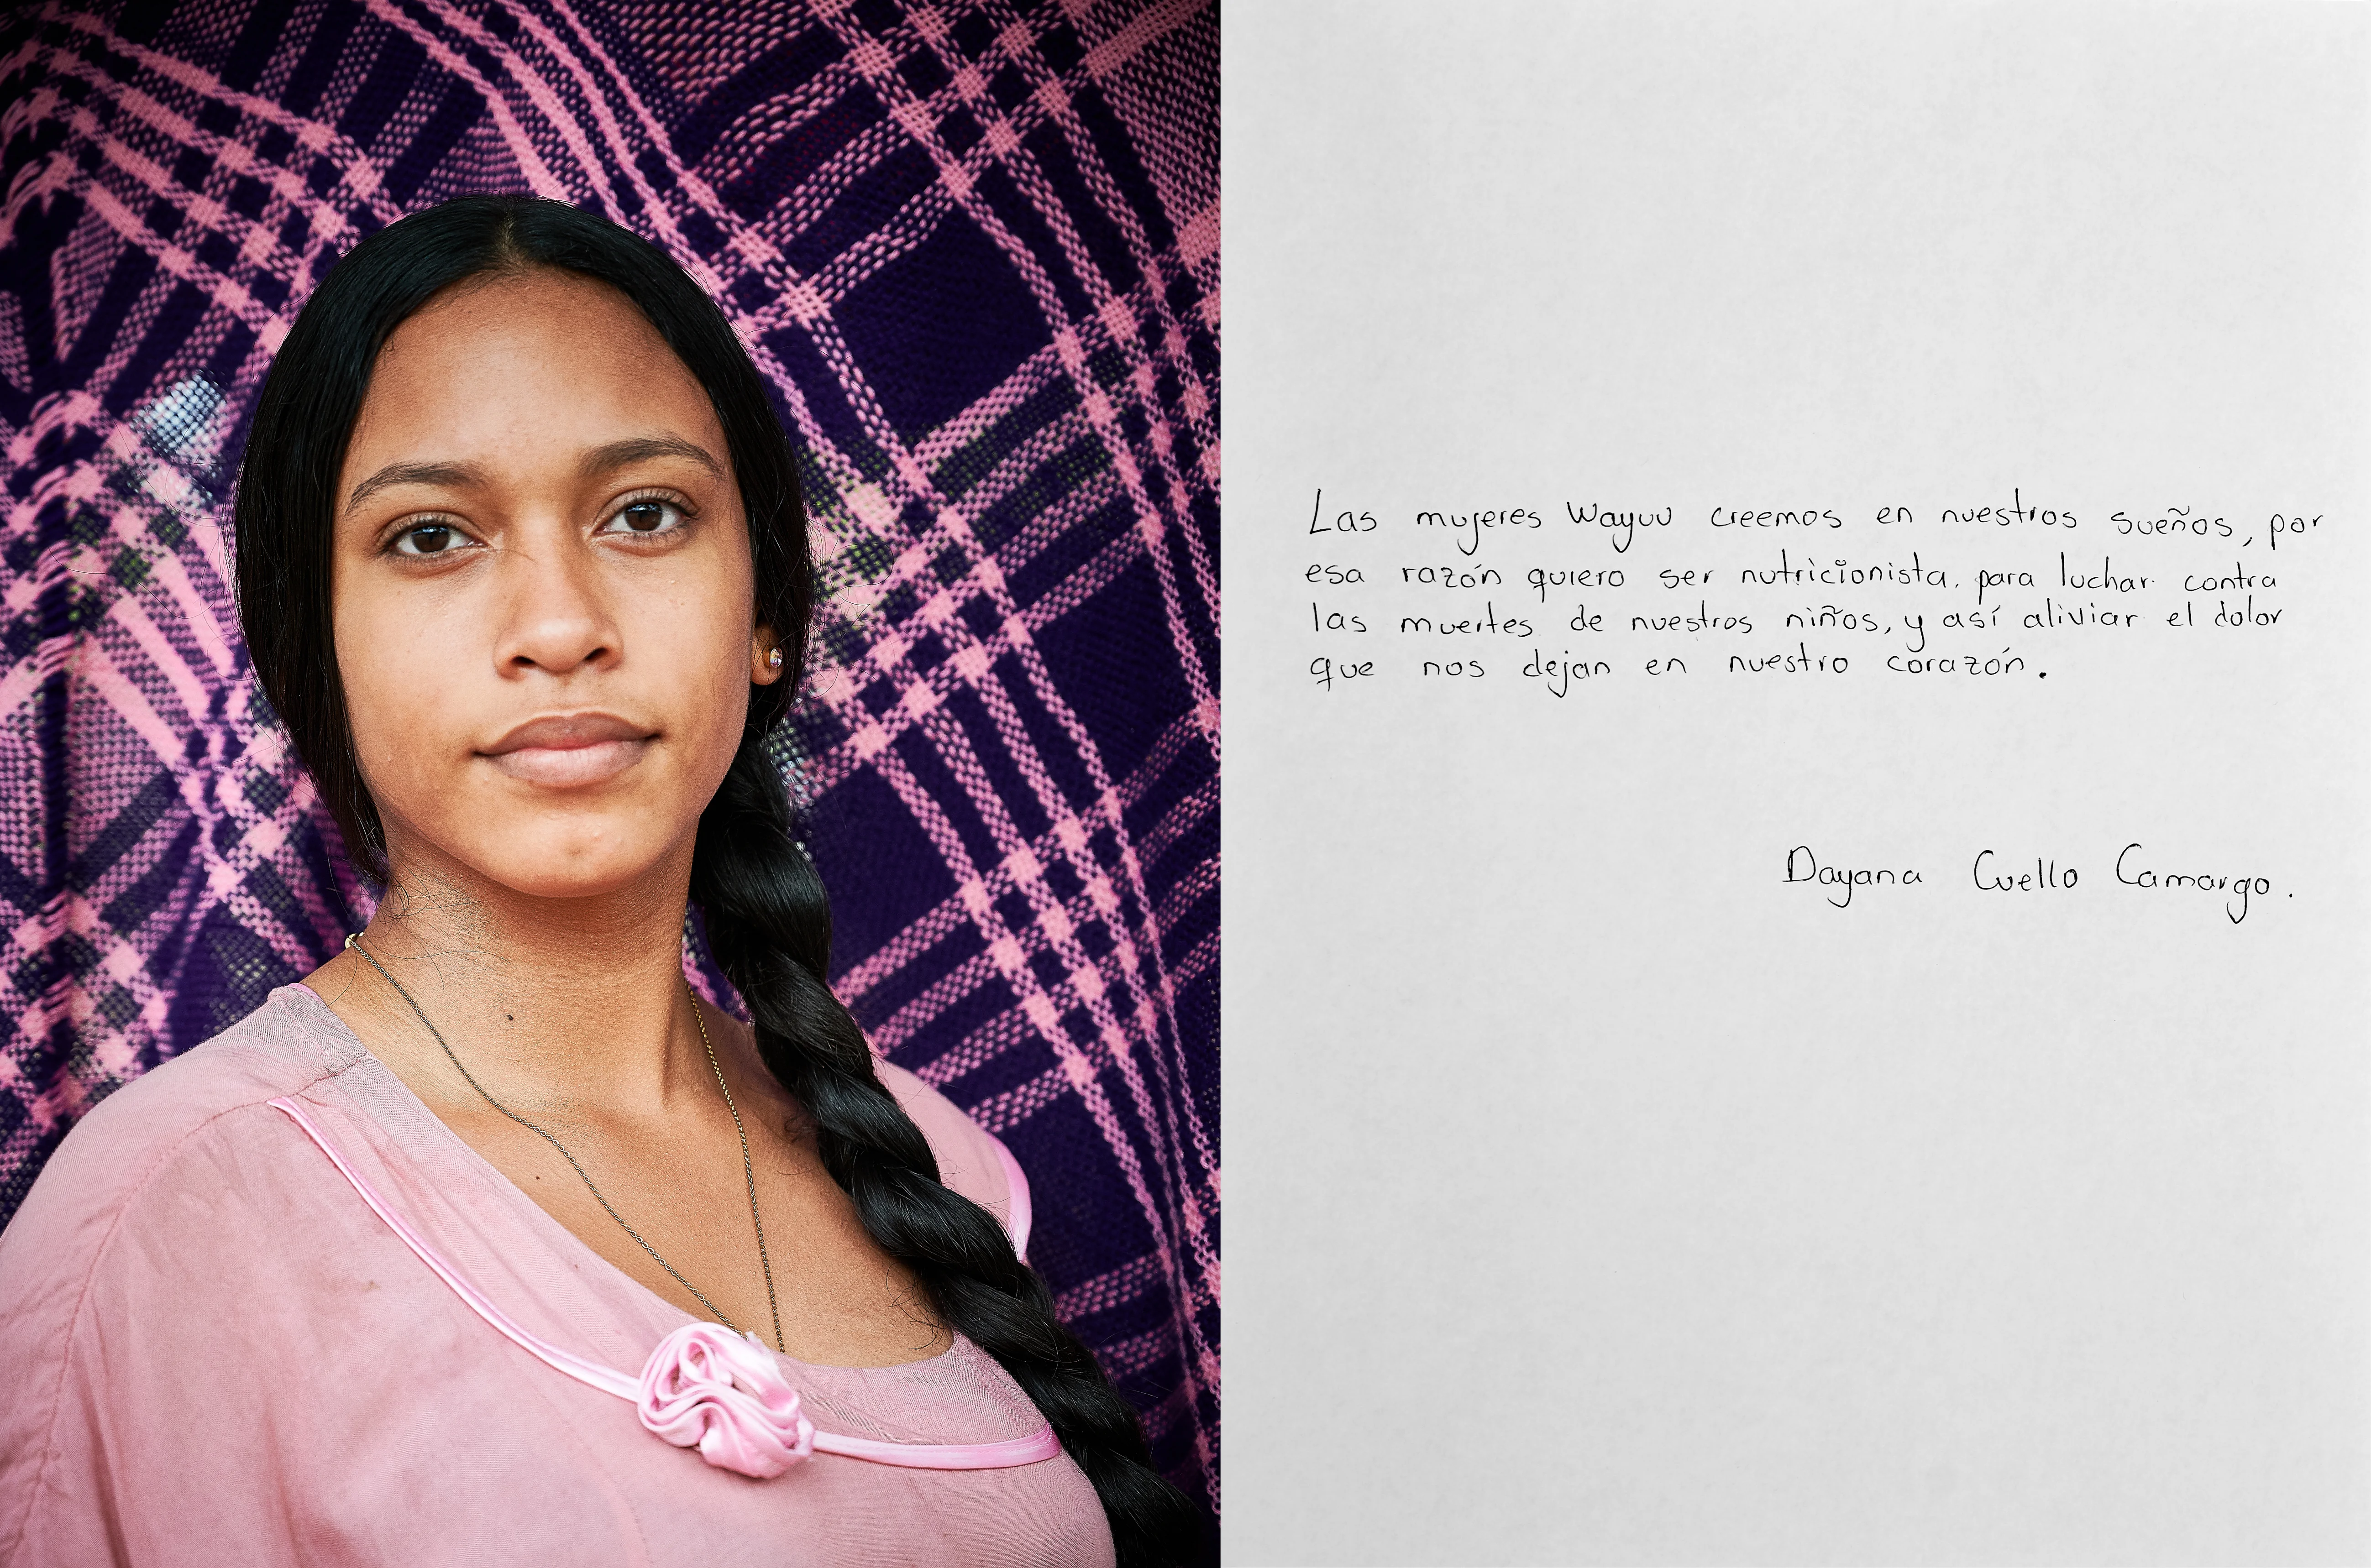 Las mujeres Wayuu creemos en nuestros sueños, por
esa razón quiero ser nutricionista, para luchar contra
las muertes de nuestros niños, y así aliviar el dolor
que nos dejan en nuestro corazón.
Dayana Cuello Camargo.